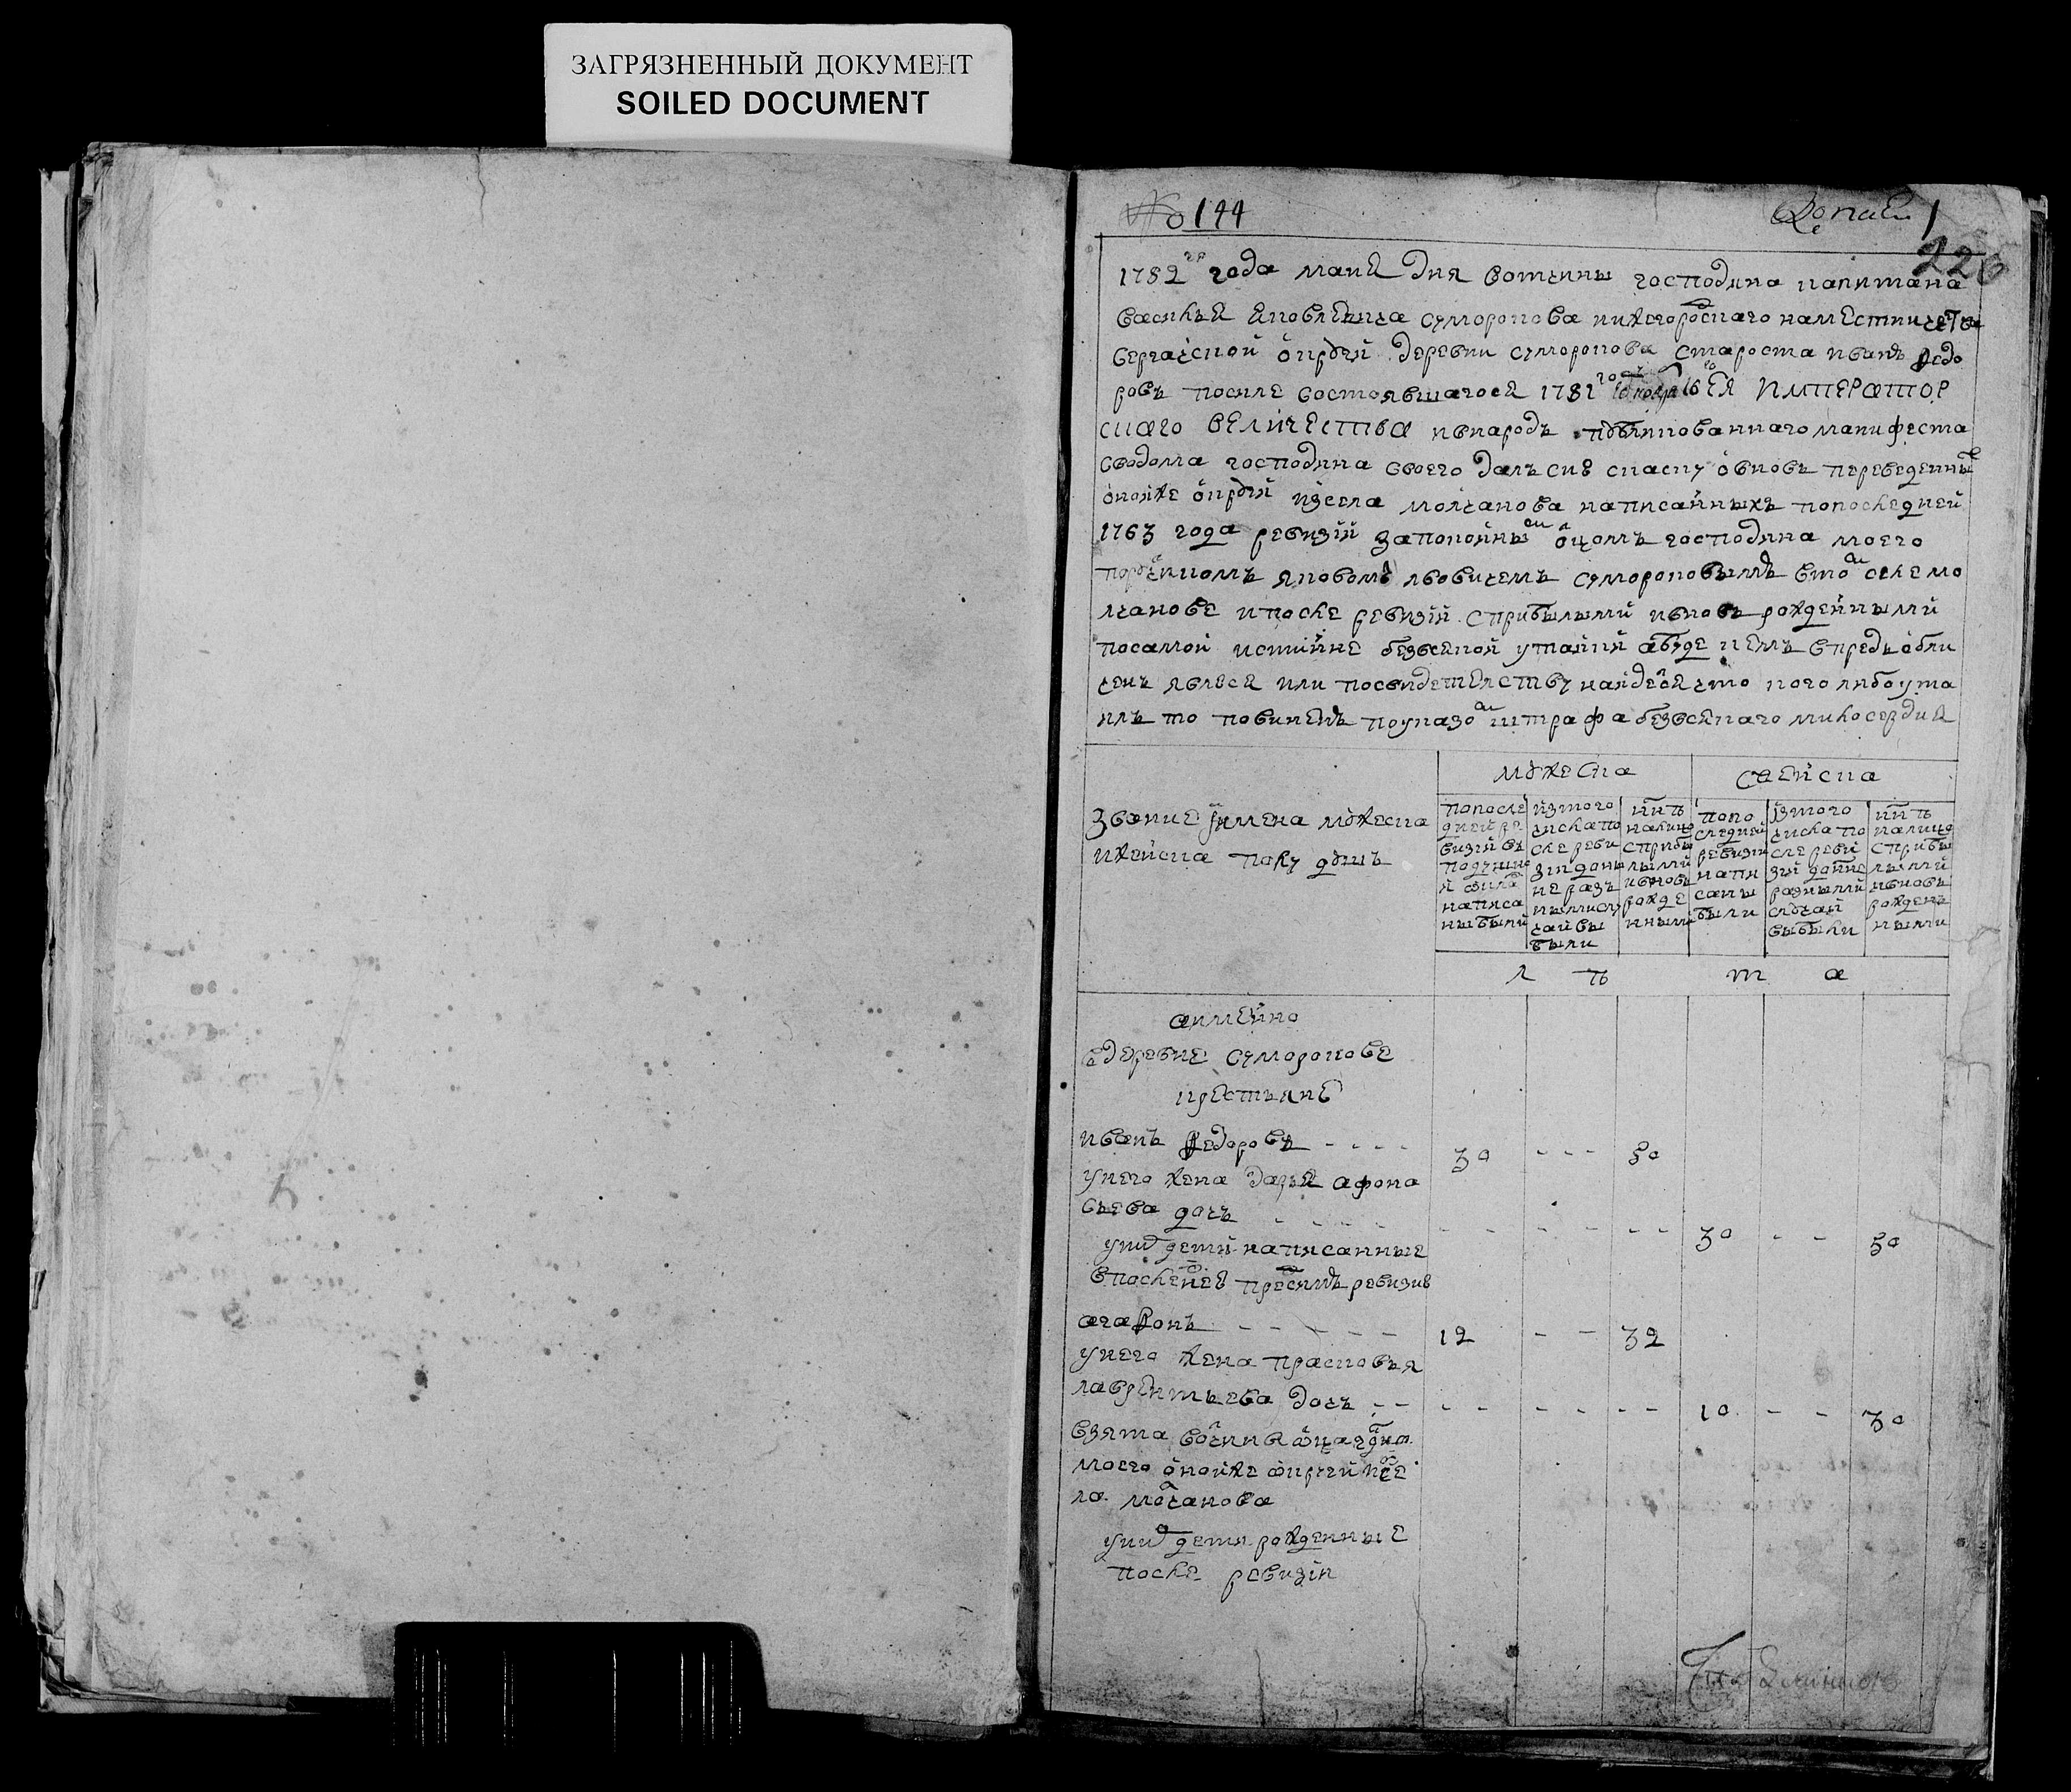 ЗАГРЯЗНЕННЫЙ ДОКУМЕНТ
SOILED DOCUMENT
No 144
Копия 1
226
1782 го года маия дня вотчины господина капитана
василья яковлевича суморокова нижегороскаго наместничества
сергачской округи деревни суморокова староста иванъ федо
ровъ после состоявшагося 1781 го ноября 16 го ЕЯ ИМПЕРАТОР
скаго ВЕЛИЧЕства и внародъ публикованнаго манифеста
сведома господина своего далъ сию скаску овновь переведенныхъ
оной же округи изсела молчанова написанныхъ попоследней
1763 года ревизии запокойнымъ отцомъ господина моего
порутчикомъ яковомъ львовичемъ сумороковымъ втомъ селе мо
лчанове и после ревизии сприбылыми ивновь рожденными
посамой истинне безвсякой утайки абуде чемъ впредь обли
ченъ явлюся или посвидетелству найдется что кого либо ута
илъ то повиненъ поуказомъ штрафа безвсякаго милосердия
мужеска
женска
звание имена мужеска
иженска полу душъ
попосле
дней ре
визии въ
подушно
й окладъ
написа
ны были
изтого
числа по
сле реви
зии
разъ
ными слу
чаи вы
были
ныне
налицо
сприбы
лыми
ивновь
рожде
нными
попо
следней
ревизии
напи
саны
были
изтого
числа по
сле реви
зии
разными
случаи
выбыли
ныне
налицо
сприбы
лыми
ивновь
рожден
ными
л ѣ т а
аимянно
вдеревне сумарокове
крестьяне
иванъ федоровъ - - - - 30 - - - 50
унего жена дарья афона
сьева дочь - - - - 30 - - 50
уних дети написанные
впоследней пред симъ ревизии
агафонъ - - - - - - 12 - - 32
унего жена прасковья
лаврентьева дочь - - 10 - - 30
взята вотчины отца гдна
моего оной же округи исе
ла молчанова
уних дети рожденные
после ревизии